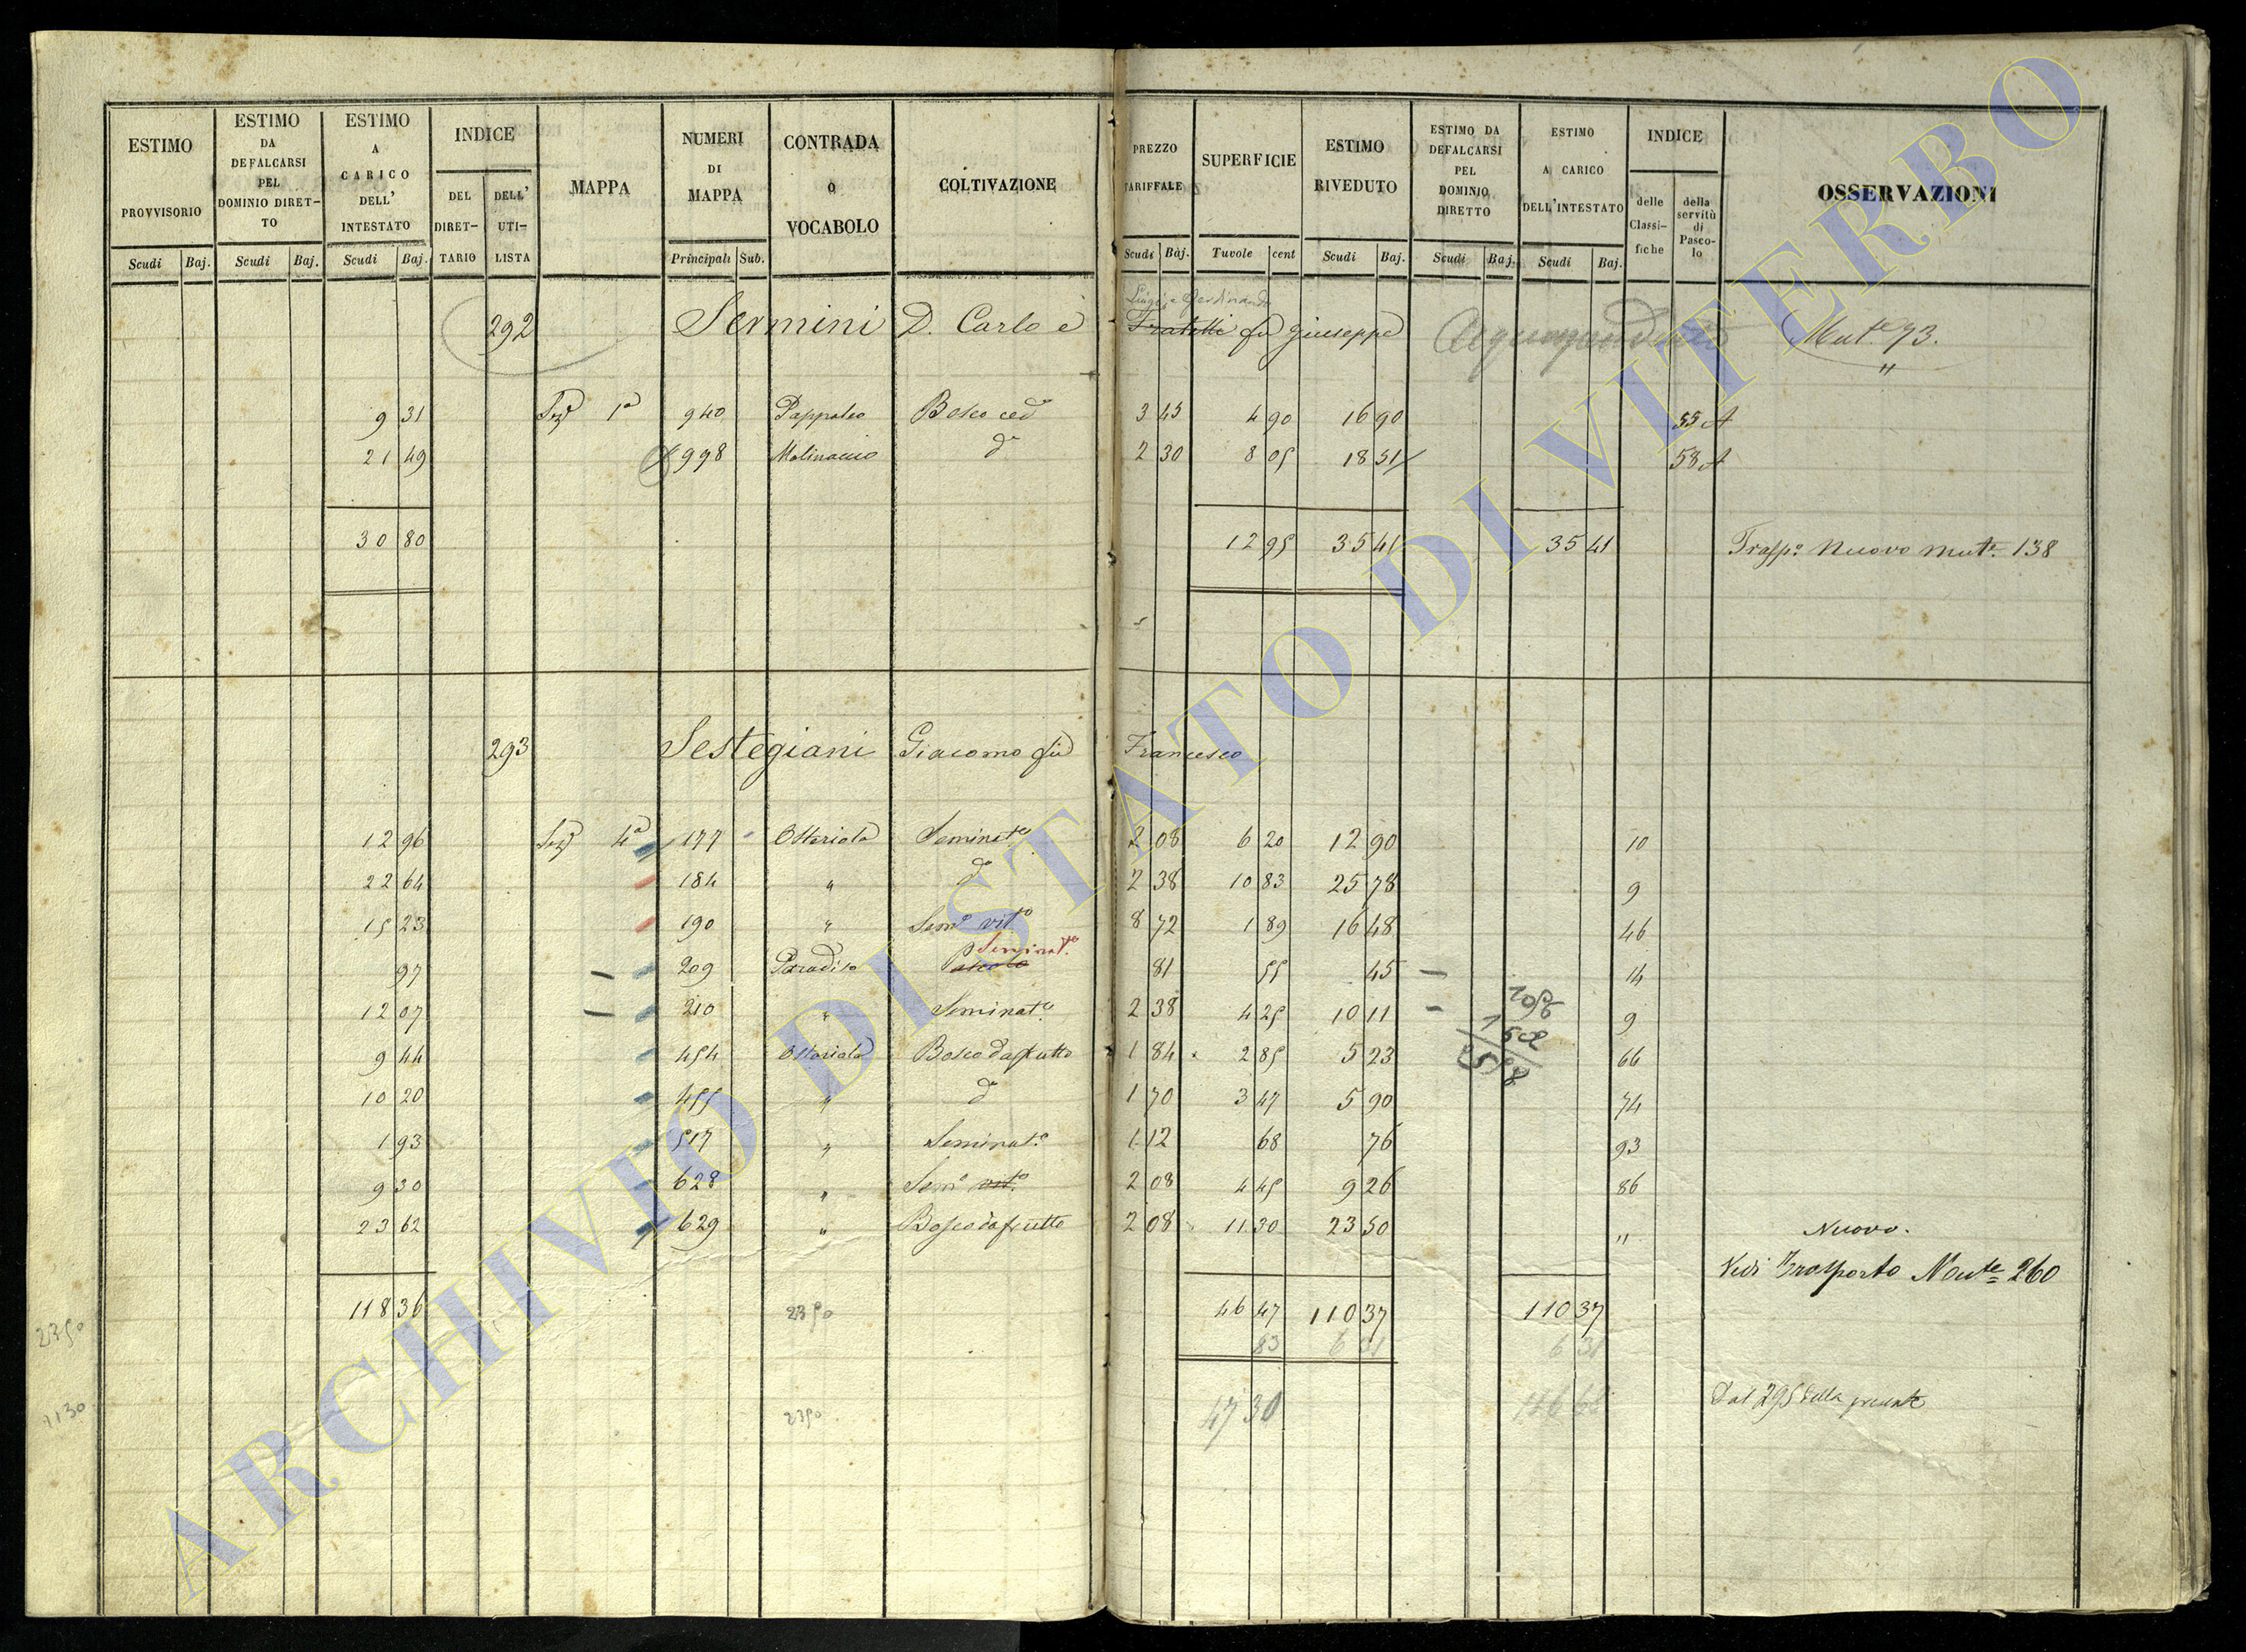 ESTIMO PROVVISORIO Scudi Baj.
ESTIMO DA DEFALCARSI PEL DOMINIO DIRET-TO Scudi Baj.
ESTIMO A CARICO DELL' INTESTATO Scudi Baj.
INDICE DEL DIRET-TARIO DELL' UTI-LISTA
MAPPA
NUMERI DI MAPPA Principali Sub.
CONTRADA O VOCABOLO
COLTIVAZIONE
PREZZO TARIFFALE Scudi Baj.
SUPERFICIE Tavole cent
ESTIMO RIVEDUTO Scudi Baj.
ESTIMO DA DEFALCARSI PEL DOMINIO DIRETTO Scudi Baj.
ESTIMO A CARICO DELL'INTESTATO Scudi Baj.
INDICE delle Classi-fiche della servitù di Pasco-lo
OSSERVAZIONI
Luigi e Ferdinando
292 Sermini D. Carlo e Fratelli fu Giuseppe Mut.e 73.
"
9 31 Sez.e 1a 940 Bosco ced.o 3 45 4 90 16 90 55 A
21 49 998 Molinaccio do 2 30 8 05 18 51 58 A
30 80 12 95 35 41 35 41 Trasp.o Nuovo Mut.e 138
293 Sestegiani Giacomo fu Francesco
12 96 Sez.e 4a 177 Osteriola Seminat.o 2 08 6 20 12 90 10
22 64 184 " do 2 38 10 83 25 78 9
15 23 190 " Sem.o vit.o 8 72 1 89 16 48 46
Seminat.o
97 209 Paradiso Pascolo 81 55 45 14
12 07 210 " Seminat.o 2 38 4 25 10 11 9
1056
9 44 454 Osteriola Bosco da frutto 1 84 2 85 5 23 66
10 20 455 " do 1 70 3 47 5 90 74
1 93 517 " Seminat.o 1 12 68 76 93
9 30 628 " Sem.o vit.o 2 08 4 45 9 26 86
23 62 629 " Bosco da frutto 2 08 11 30 23 50 " Nuovo.
Vedi Trasporto Mut.e 260
118 36 2350 46 47 110 37 110 37
2350 83 6 31 6 31
1130 2350 47 30 116 68 Dal 295 della presente
ARCHIVIO DI STATO DI VITERBO